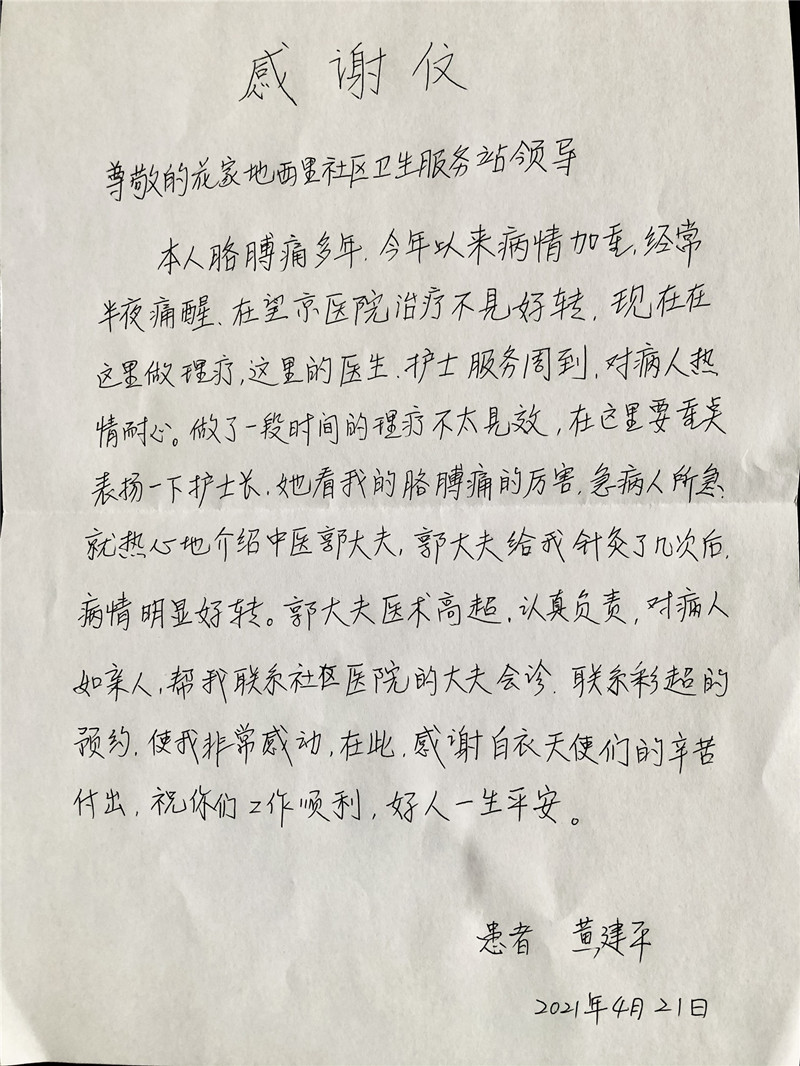 感谢信
尊敬的花家地西里社区卫生服务站领导
本人胳膊痛多年.今年以来病情加重,经常
半夜痛醒、在望京医院治疗不见好转,现在在
这里做理疗,这里的医生.护士服务周到,对病人热
情耐心。做了一段时间的理疗不太见效,在这里要重点
表扬一下护士长,她看我的胳膊痛的厉害,急病人所急,
就热心地介绍中医郭大夫,郭大夫给我针灸了几次后,
病情明显好转。郭大夫医术高超,认真负责,对病人
如亲人,帮我联系社区医院的大夫会诊.联系彩超的
预约,使我非常感动,在此,感谢白衣天使们的辛苦
付出,祝你们工作顺利,好人一生平安。
患者 黄建平
2021年4月21日